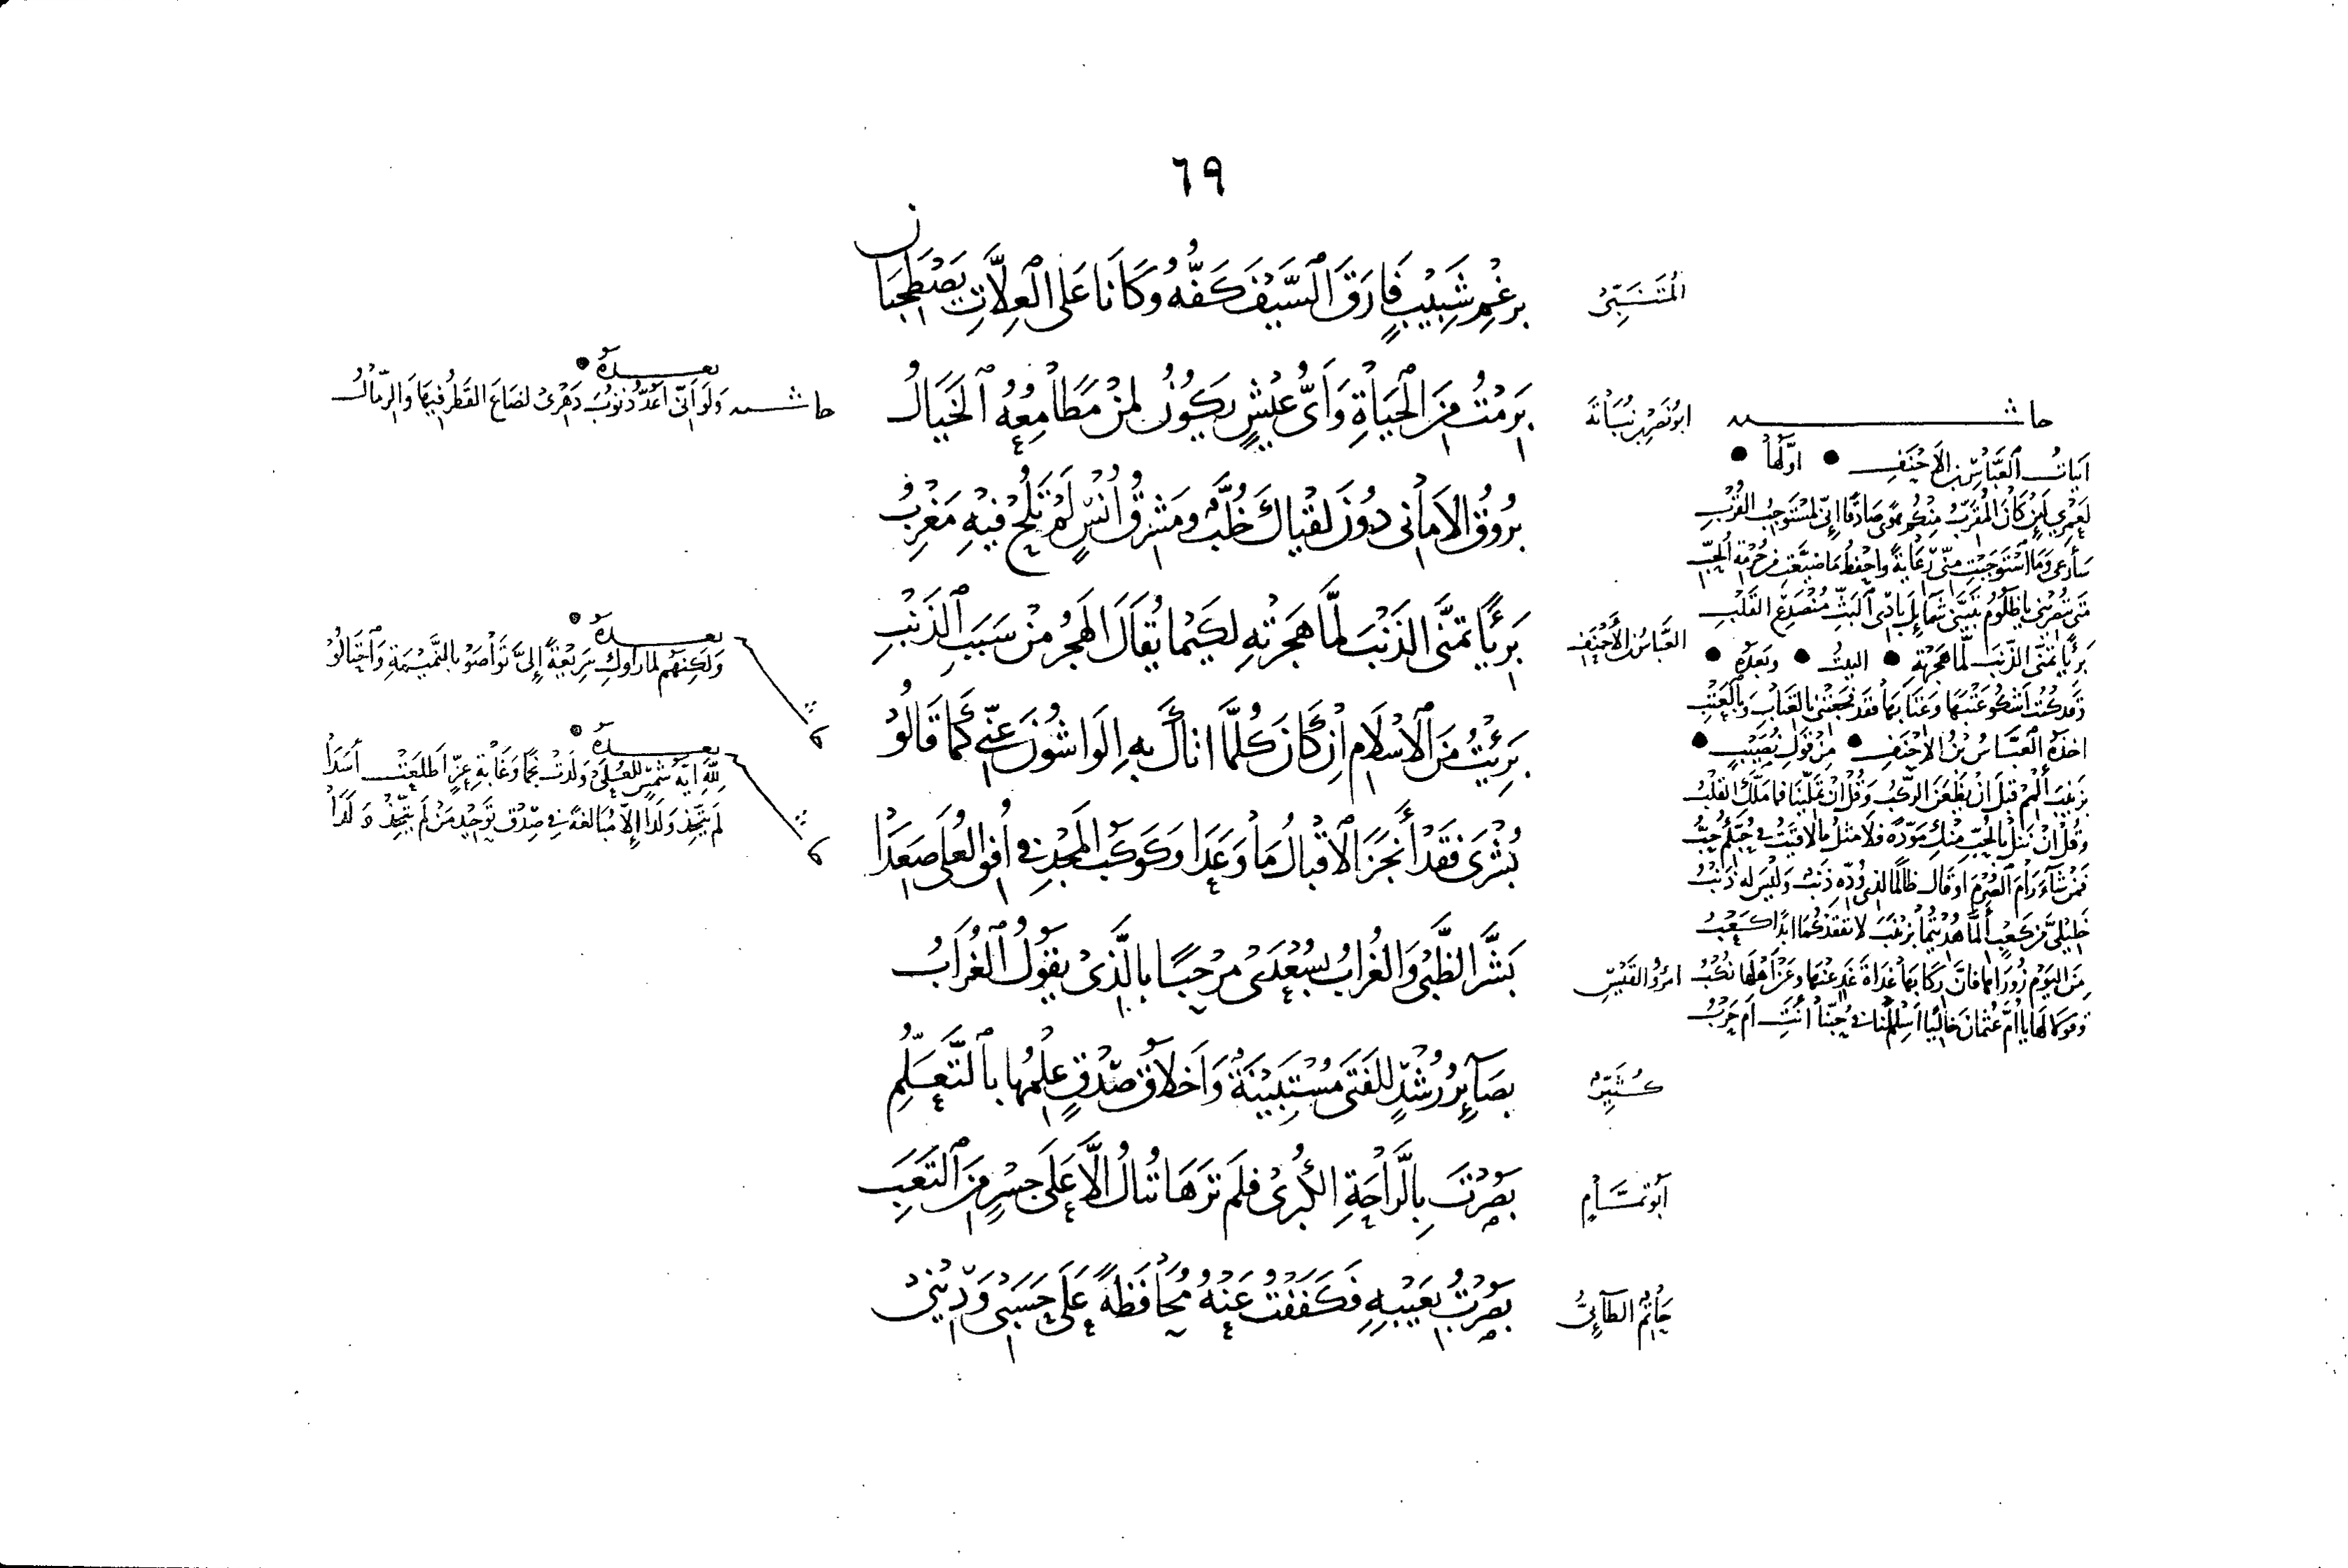 ٦٩
المتنبي
برغم شبيب فارق السيف كفه وكانا على العلات يصطحبان
ابو نصر بن نباتة
برمت من الحياة وأي عيش يكون لمن مطامعه الخيال
بروق الاماني دون لقياك خلب ومشرق انس لم تلح فيه مغرب
العباس بن الأحنف
بريئا تمنى الذنب لما هجرته لكيما يقال الهجر من سبب الذنب
برئت من الاسلام ان كان كلما اتاك به الواشون عني كما قالوا
بشرى فقد أنجز الاقبال ما وعدا وكوكب المجد في افق العلى صعدا
بشر الظبي والغراب بسعدى مرحبا بالذي يقول الغراب
كثير
بصائر رشد للفتى مستبينة وأخلاق صدق علمها بالتعلم
أبو تمام
بصرت بالراحة الكبرى فلم ترها تنال الا على جسر من التعب
حاتم الطائي
بصرت بعيبه فكففت عنه محافظة على حسبي وديني
حاشيه
ابيات العباس بن الاحنف اولها
لعمري لئن كان المقرب منكم هوى صادقا إني لمستوجب القرب
سأرعى وما استوجبت مني رعاية واحفظ ما ضيعت من حرمة الحب
متى تبصريني يا ظلوم تبيني شمائل بادي البث منصدع القلب
بريئا تمنى الذنب لما هجرته البيت وبعده
وقد كنت اشكو عتبها وعتابها فقد فجعتني بالعتاب وبالعتب
اخذه العباس بن الاحنف من قول نصيب
بزينب ألمم قبل ان يظعن الركب وقل ان تملينا فما ملك القلب
وقل ان ننل بالحب منك مودة فلا مثل ما لاقيت في حبكم حب
فمن شاء رام الصرم او قال ظالما لذي وده ذنب وليس له ذنب
خليلي من كعب ألما هديتما بزينب لا تفقدكما ابدا كعب
امرؤ القيس
من اليوم زوراها فان ركابها غداة غد عنها وعن أهلها نكب
وقولا لها يا ام عثمان خلتي اسلم لنا في حبنا أنت ام حرب
بعده
حاشيه ولو اني اعد ذنوب دهري لضاع القطر فيها والرمال
بعده
ولكنهم لما رأوك سريعة إلي تواصوا بالنميمة واحتالوا
بعده
لله اية شمس للعلى ولدت نجما وغابة عز اطلعت أسدا
لم يتخذ ولدا إلا مبالغة في صدق توحيد من لم يتخذ ولدا